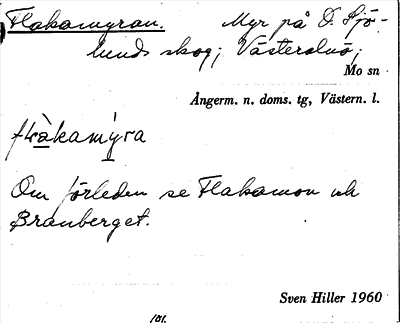 Flakamyran. Myr på D. Sjö-
lunds skog; Västerolnö;
Mo sn
Ångerm. n. doms. tg, Västern. l.
flàkamy̨ra
Om förleden se Flakamon och
Branberget.
Sven Hiller 1960
101.